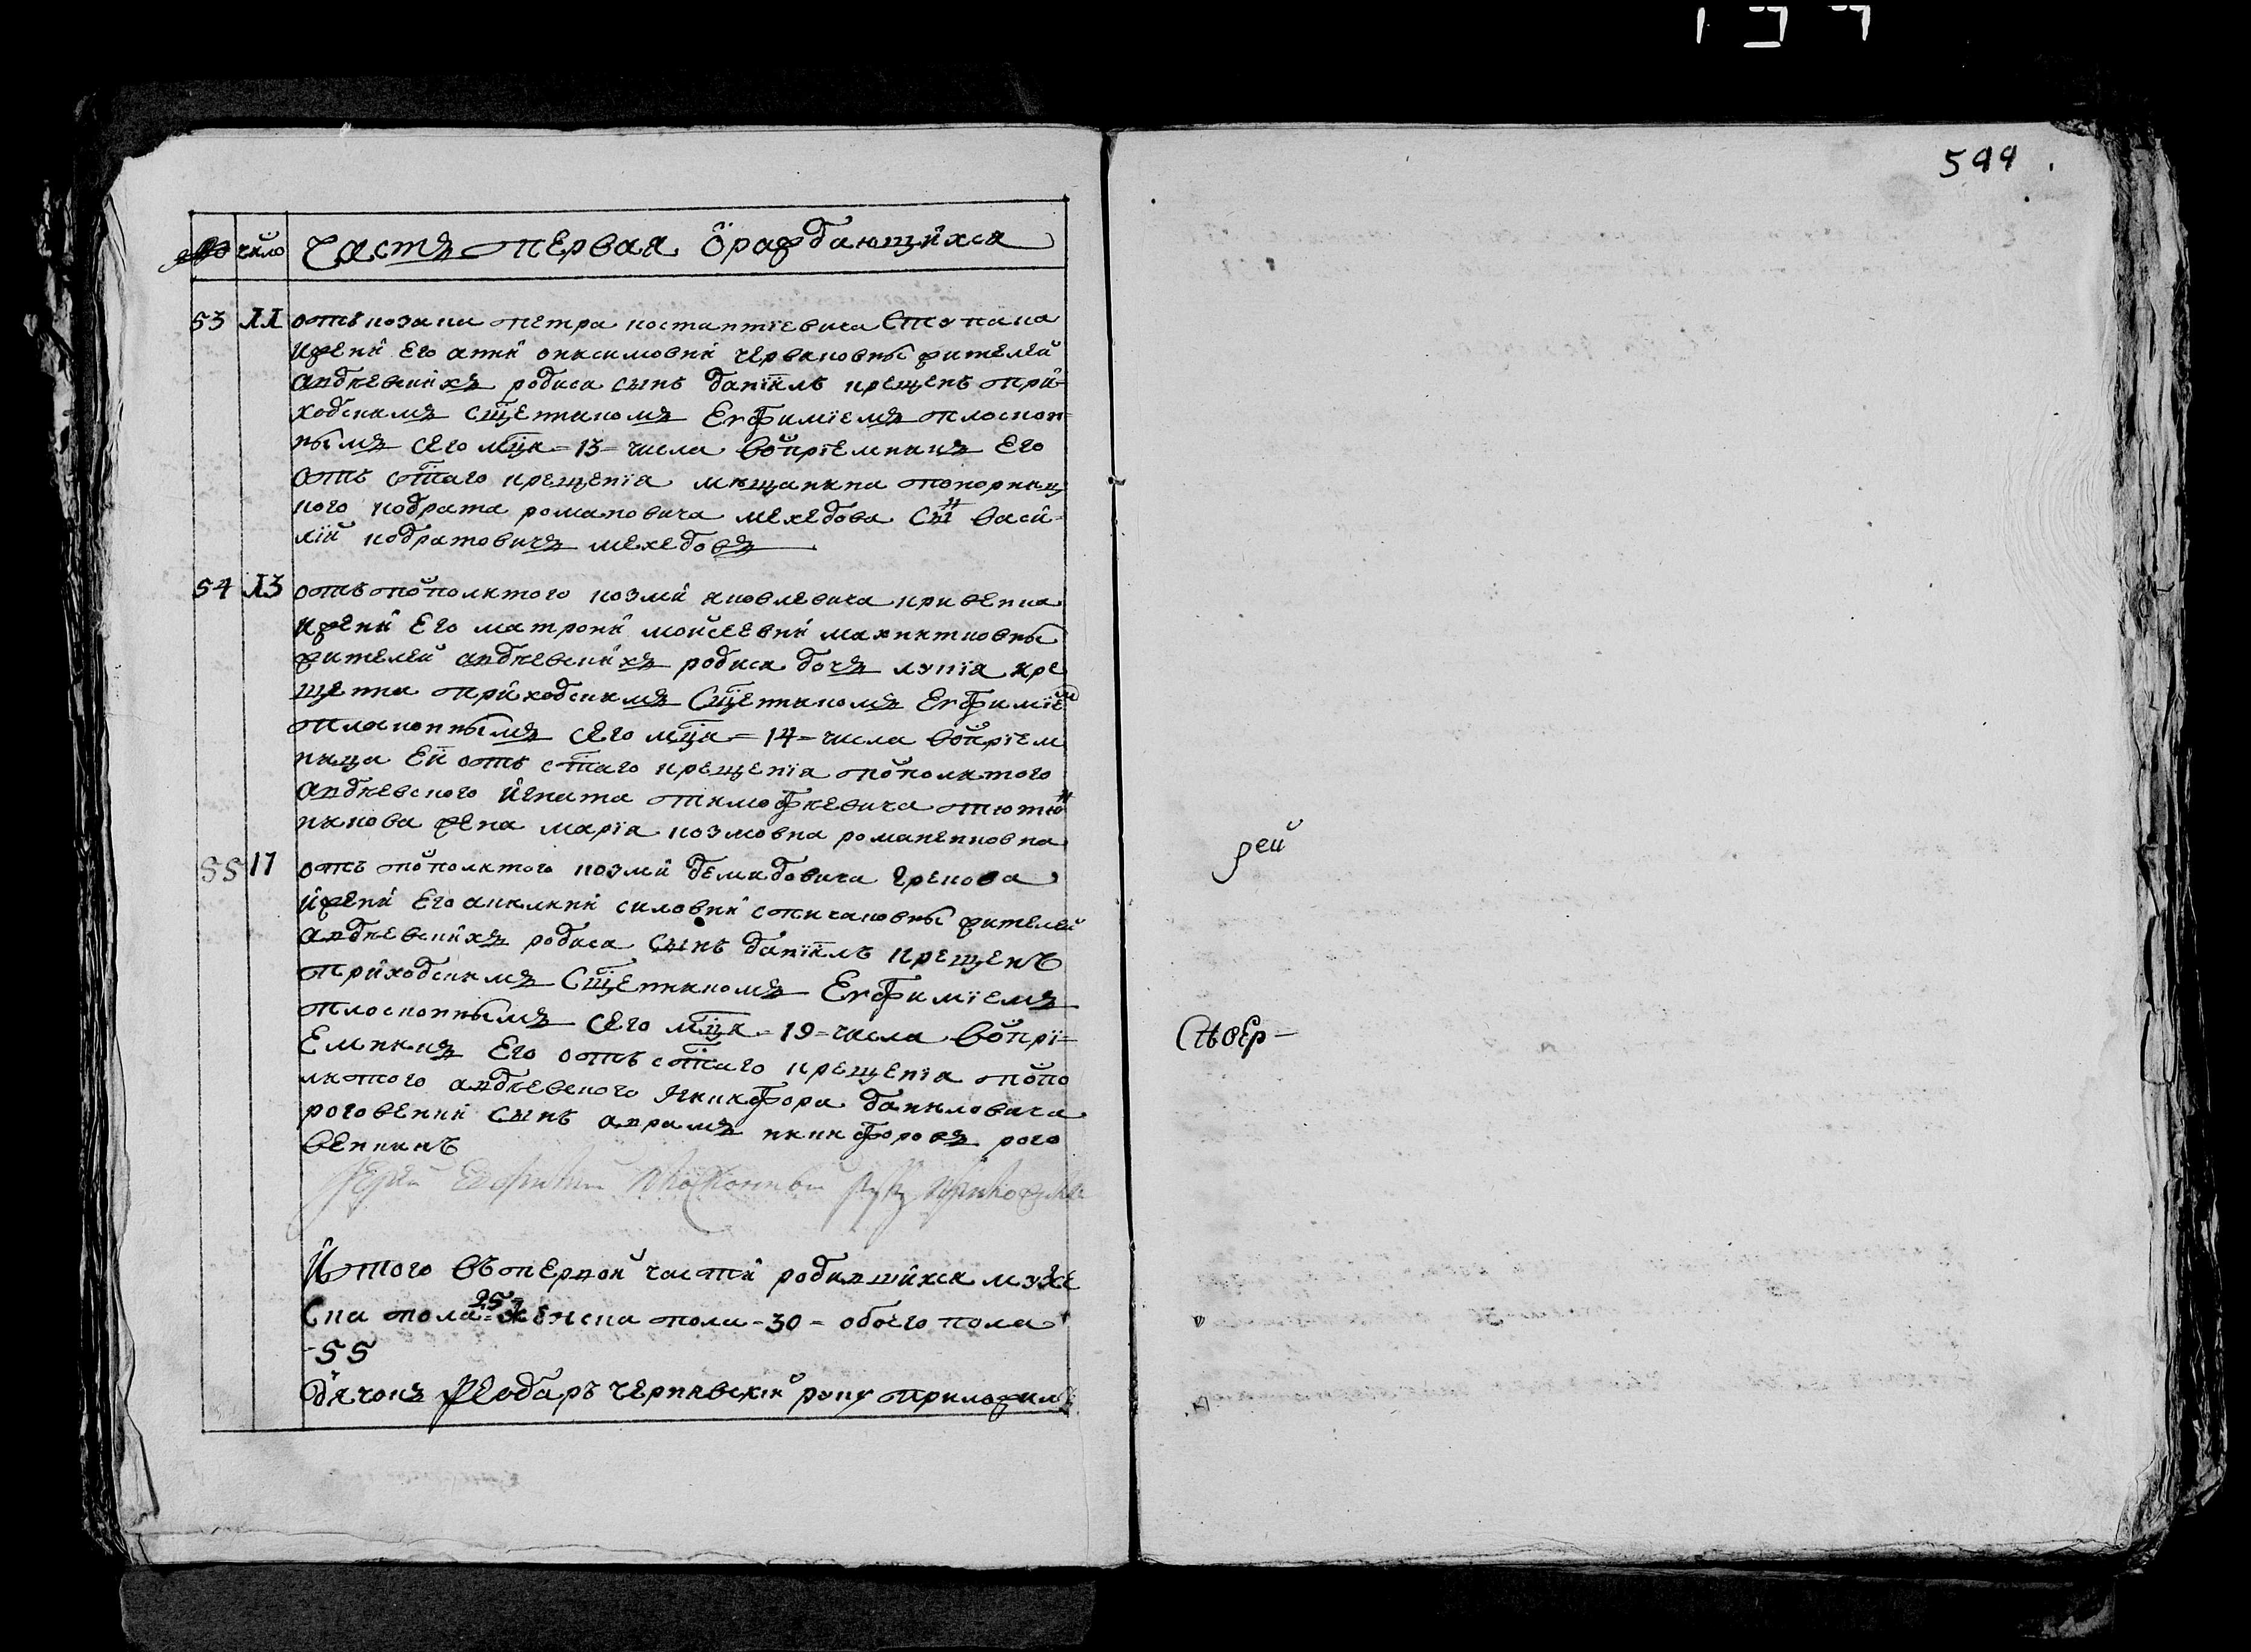 число Часть первая о раждающихся
53 11 отъ козака петра костантїевича стопана
и жени его анни онисимовни червяковны жителей
андреевскихъ родися сынъ данїилъ крещенъ при-
ходскимъ сщенникомъ Евфимїемъ плоскон-
нымъ сего мца = 13 = числа воспрїемникъ его
отъ стаго крещенїя мещанина
кого кодрата романовича мехедова сын васи-
лїй кодратовичъ мехедовъ
54 13 отъ посполитого козми яковлевича кривенка
и жени его матрони мойсеевни махнитковны
жителей андреевскихъ родися дочъ лукїя кре
щенна приходскимъ сщенникомъ Евфимїем
плосконнымъ сего мца = 14 = числа воспрїем
ница ей отъ стаго крещенїя посполитого
андреевского игната тимофеевича тютюн
никова жена марїа козмовна романенковна
55 17 отъ посполитого козми демидовича грекова
и жени его акилини силовни спичаковны жителей
андреевскихъ родися сынъ данїилъ крещенъ
приходскимъ сщенникомъ Евфимїемъ
плосконнымъ сего мца = 19 = числа воспрї=
емникъ его отъ стаго крещенїя поспо
литого андреевского никифора даниловича
роговенки сынъ аврамъ никифоровъ рого
венкинъ
Иерей Евфимий Плосконный руку приложилъ
Итого въ первой части родившихся муже
ска пола = 25 = женска пола - 30 - обоего пола
- 55
Дячокъ Феодоръ чернявскїй руку приложилъ
599
рей